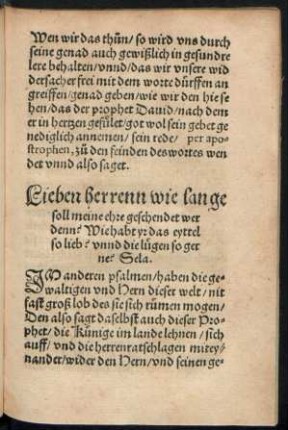 Wen wir das thůn/ so wird vns durch
seine genad auch gewißlich in gesundre
lere behalten/ vnnd/ das wir vnsere wid
dersacher frei mit dem worte dürffen an
greiffen/ genad geben/ wie wir den hie se
hen/ das der prophet Dauid/ nach dem
er in hertzen gefület/ got wol sein gebet ge
nediglich annemen/ sein rede/ per apo-
strophen, zů den feinden des wortes wen
det vnnd also saget.
Lieben herrenn wie lange
soll meine ehre geschendet wer
denn? Wie habt yr das eyttel
so lieb? vnnd die lügen so ger
ne? Sela.
IM anderen psalmen/ haben die ge-
waltigen vnd Hern dieser welt/ nit
fast groß lob des sie sich rümen mogen/
Den also sagt daselbst auch dieser Pro-
phet/ die Künige im lande lehnen/ sich
auff/ vnd die herren ratschlagen mitey-
nander/ wider den Hern/ vnd seinen ge-